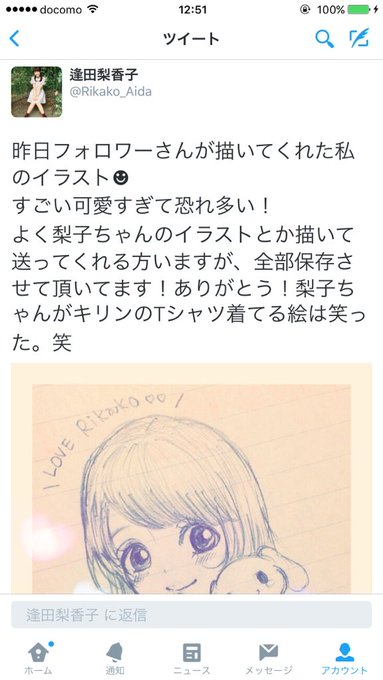 docomo 12:51 100%
ツイート
逢田梨香子
@Rikako_Aida
昨日フォロワーさんが描いてくれた私
のイラスト☻
すごい可愛すぎて恐れ多い！
よく梨子ちゃんのイラストとか描いて
送ってくれる方いますが、全部保存さ
せて頂いてます！ありがとう！梨子ち
ゃんがキリンのTシャツ着てる絵は笑っ
た。笑
I LOVE Rikako♡♡!
逢田梨香子 に返信
ホーム
通知
ニュース
メッセージ
アカウント